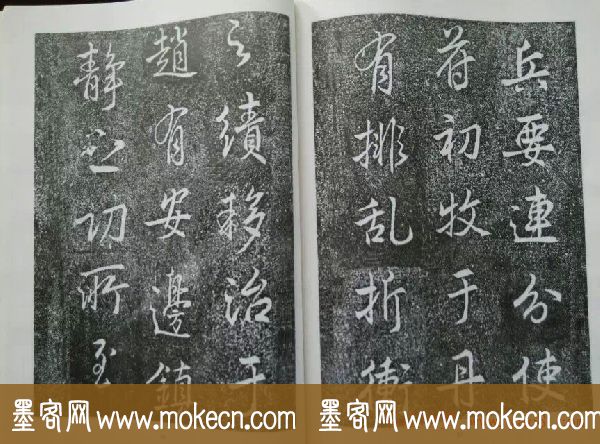 兵要連分使
符初牧于丹
有排乱折衝
之績移治于
趙有安邊鎮
静之功所至
墨客网 www.mokecn.com
墨客网 www.mokecn.com